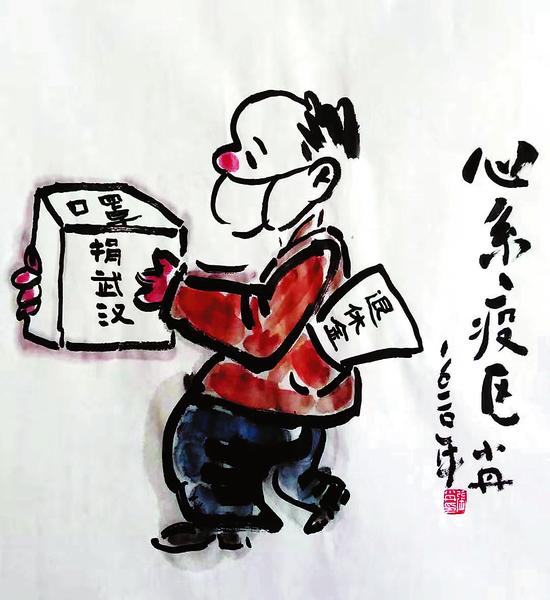 口罩
捐武汉
退休金
心系疫区 小丹
二〇二〇年